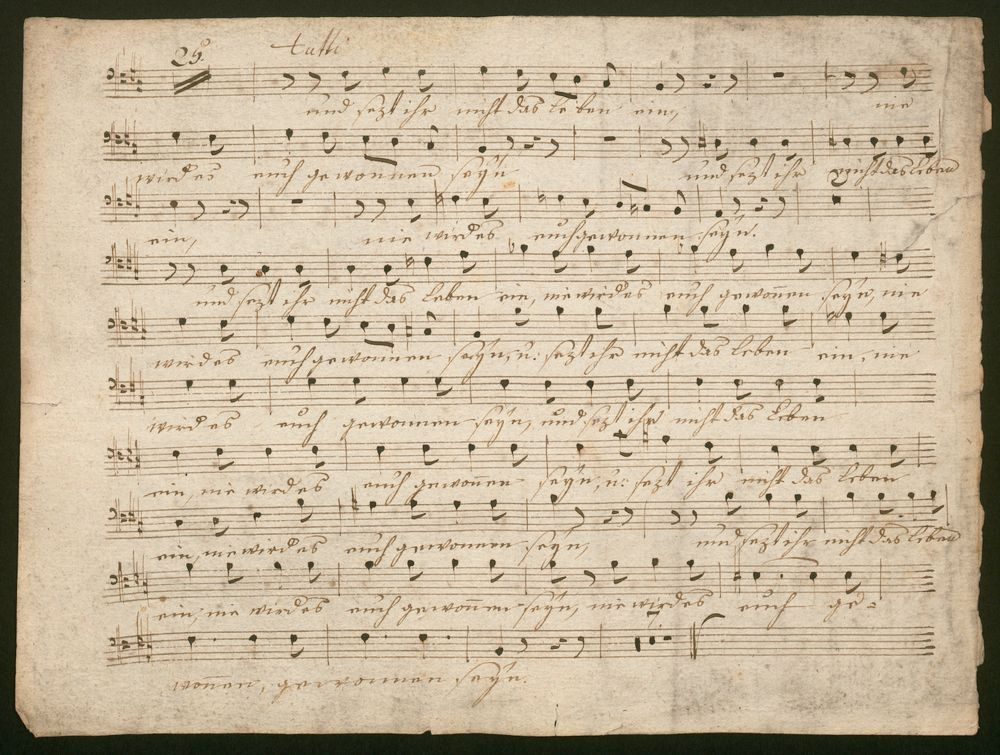 25. tutti
und sezt ihr nicht das Leben ein, nie
wird es euch gewonnen seyn und sezt ihr nicht das Leben
ein, nie wird es euch gewonnen seyn.
und sezt ihr nicht das Leben ein, nie wird es euch gewonnen seyn, nie
wird es euch gewonnen seyn, u: sezt ihr nicht das Leben ein, nie
wird es euch gewonnen seyn, und sezt ihr nicht das Leben
ein, nie wird es euch gewonen seyn, u: sezt ihr nicht das Leben
ein, nie wird es euch gewonnen seyn, und sezt ihr nicht das Leben
ein, nie wird es euch gewon̄en seyn, nie wird es euch ge=
won̄en, gewonnen seyn.